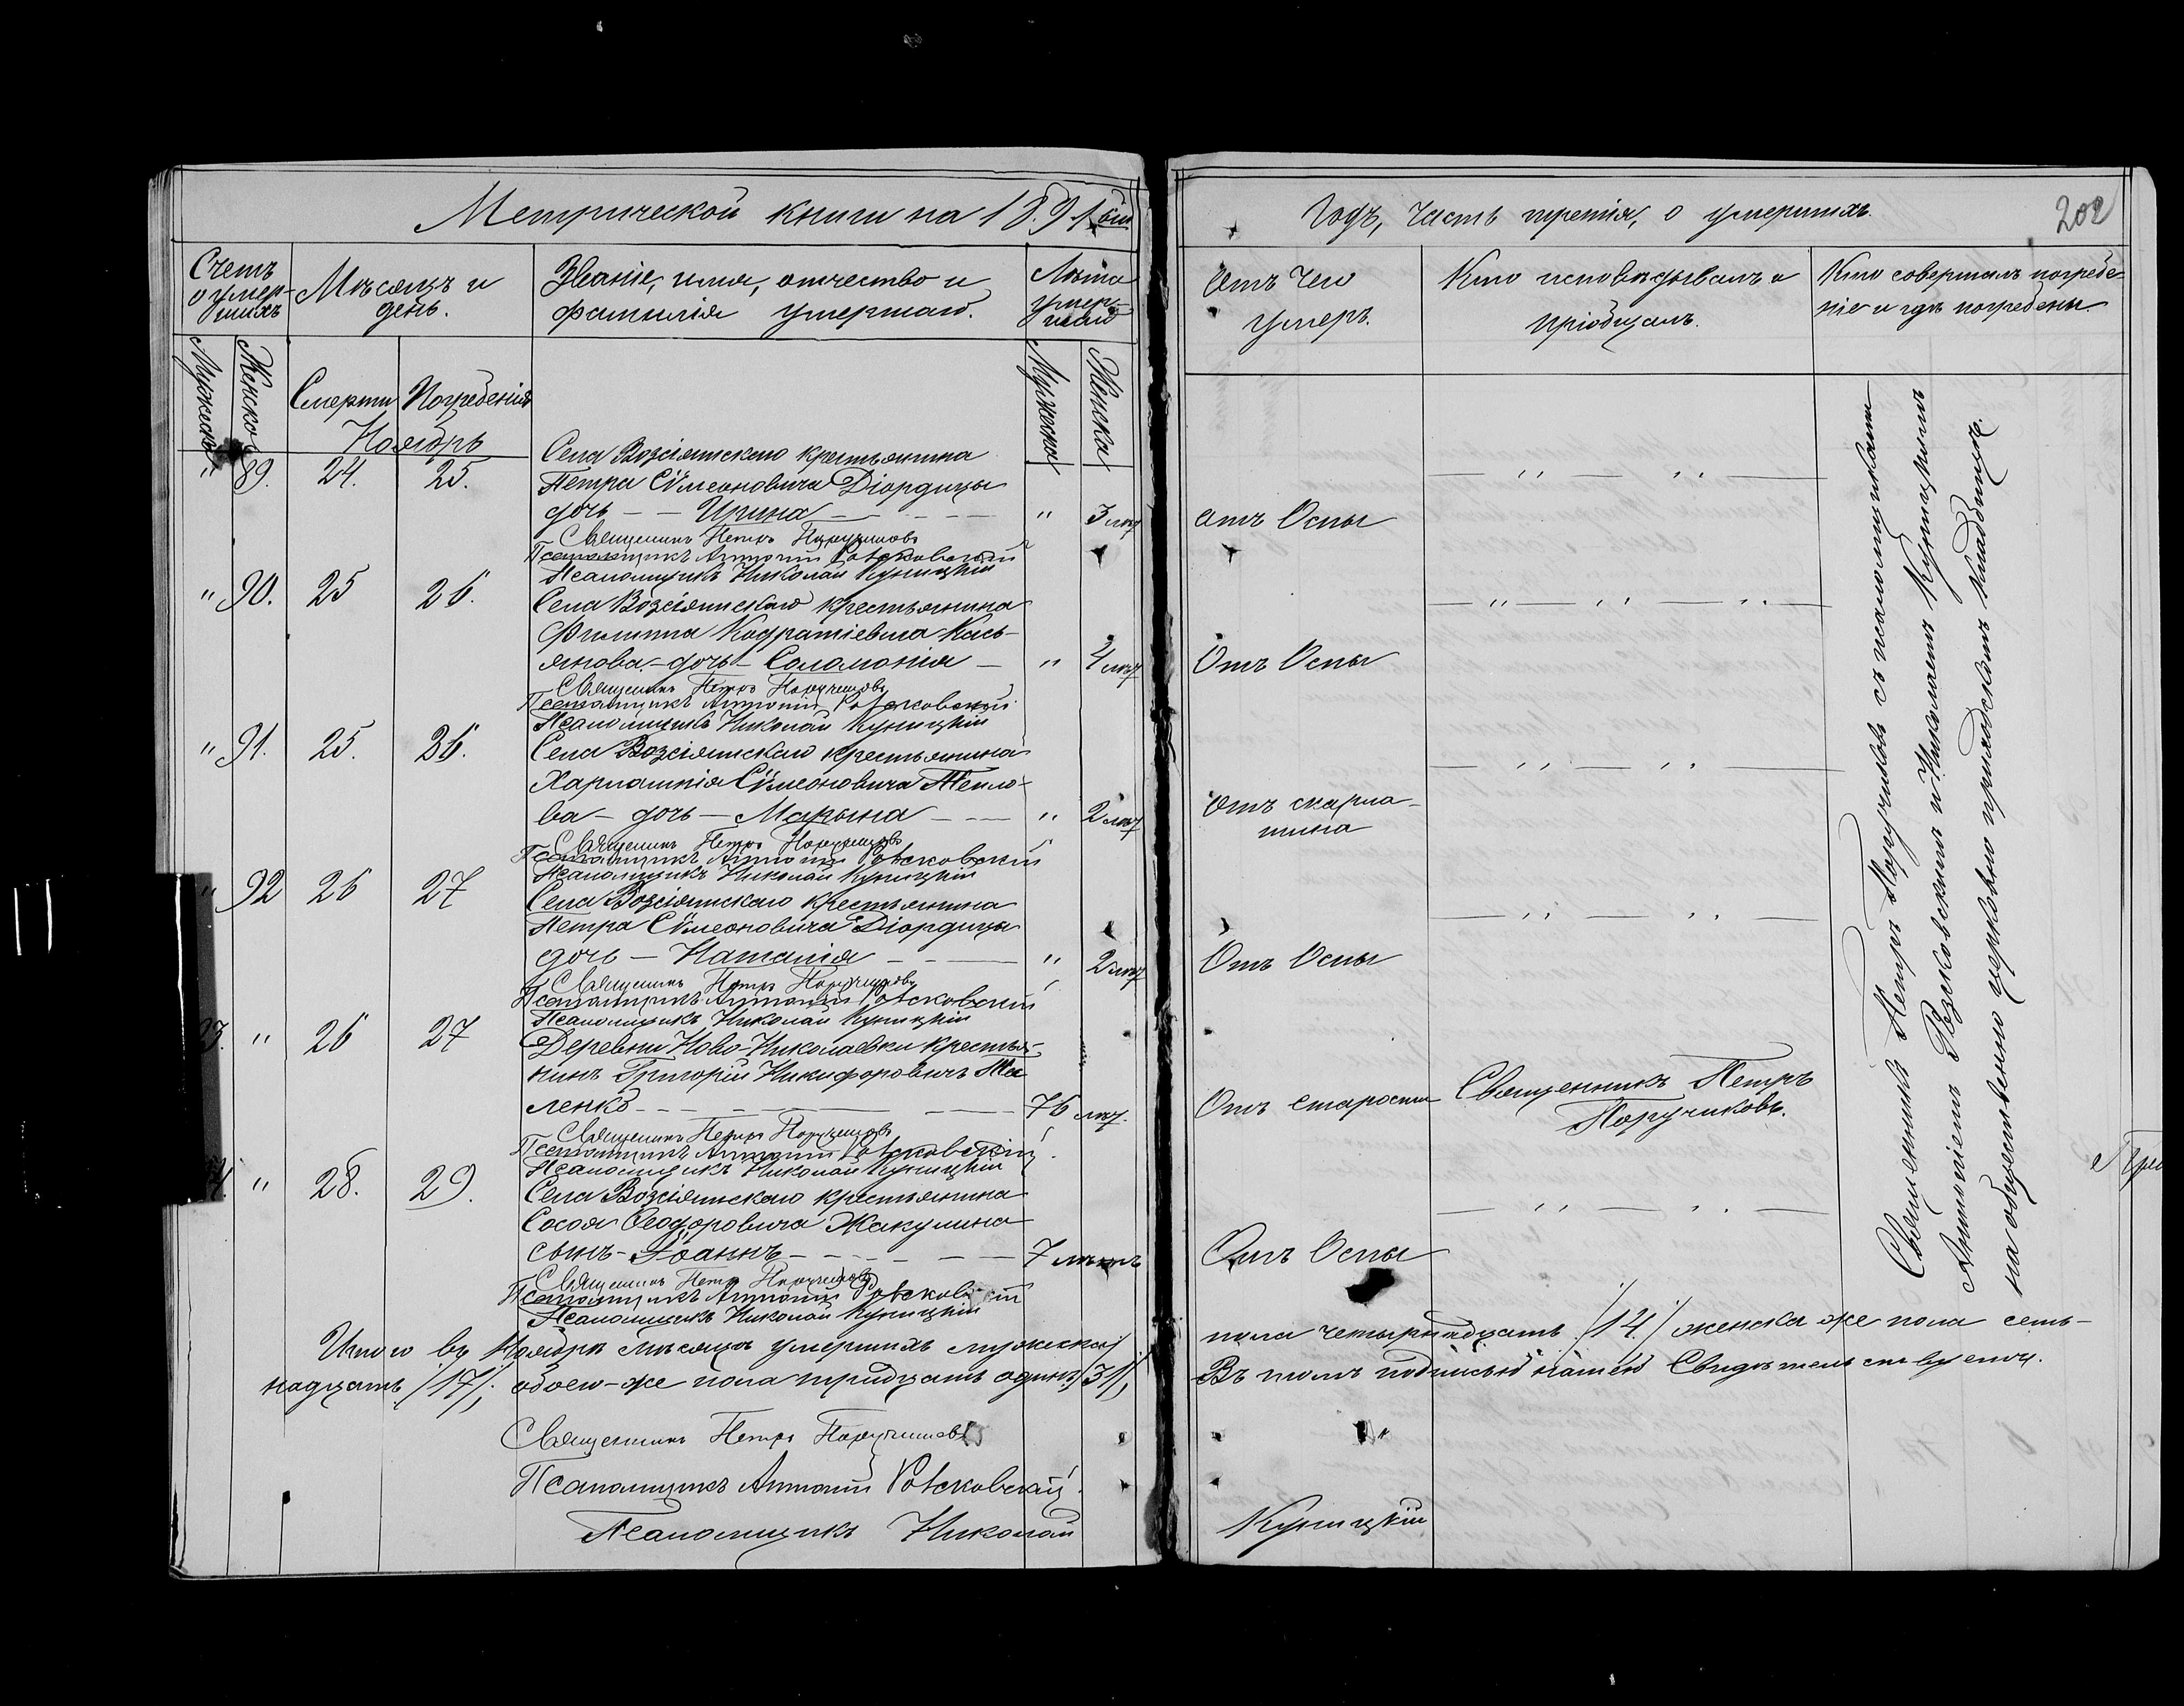 Метрической книги на 1891 ый
Счетъ
умер-
шихъ
Мѣсяцъ и
день.
Званіе, имя, отчество и
фамилія умершаго.
Лѣта
умер-
шаго
Мужска
Женска
Смерти
Погребенія
Мужска
Женска
Ноябрь
" 89. 24. 25.
Села Возсіятскаго крестьянина
Петра Сѵмеоновича Діордицы
дочь - - Ирина - - - - " 3 лѣт
Священникъ Петръ Поручиковъ
Псаломщикъ Антоній
Псаломщикъ Николай Куницкій
" 90. 25 26.
Села Возсіятскаго крестьянина
Филиппа Кодратіевича Кась-
янова - дочь - Соломонія - " 4 лѣт
Священникъ Петръ Поручиковъ
Псаломщикъ Антоній
Псаломщикъ Николай Куницкій
" 91. 25. 26.
Села Возсіятскаго крестьянина
Харлампія Сѵмеоновича Тепло-
ва - дочь - Марина - - " 2 лѣт
Священникъ Петръ Поручиковъ
Псаломщикъ Антоній
Псаломщикъ Николай Куницкій
" 92 26 27
Села Возсіятскаго крестьянина
Петра Сѵмеоновича Діордицы
дочь - Наталія - - - " 2 лѣт
Священникъ Петръ Поручиковъ
Псаломщикъ Антоній
Псаломщикъ Николай Куницкій
3. " 26 27
Деревни Ново-Николаевки крестья-
нинъ Григорій Никифоровичъ
ленко - - - - 76 лѣт.
Священникъ Петръ Поручиковъ
Псаломщикъ Антоній
Псаломщикъ Николай Куницкій
4. " 28. 29.
Села Возсіятскаго крестьянина
Сосоя Ѳеодоровича Жакулина
сынъ - Іоаннъ - - - - 7 лѣтъ
Священникъ Петръ Поручиковъ
Псаломщикъ Антоній
Псаломщикъ Николай Куницкій
Итого въ Ноябрѣ мѣсяцѣ умершихъ мужеска
надцать /17/, обоего-же пола тридцать одинъ /31/,
Священникъ Петръ Поручиковъ
Псаломщикъ Антоній
Псаломщикъ Николай
годъ, часть третія, о умершихъ.
202
Отъ чего
умеръ.
Кто исповѣдывалъ и
пріобщалъ.
Кто совершалъ погребе-
ніе и гдѣ погребены.
отъ Оспы
Отъ Оспы
Отъ скарла-
тина
Отъ Оспы
Отъ старости
Священникъ Петръ
Поручиковъ.
Отъ Оспы
Священникъ Петръ Поручиковъ съ псаломщиками
Антоніемъ и Николаемъ Куницкимъ
на общественномъ церковно приходскомъ кладбищѣ.
пола четырнадцать /14/ женска же пола семь-
Въ томъ подписью нашею Свидѣтельствуемъ.
Куницкій